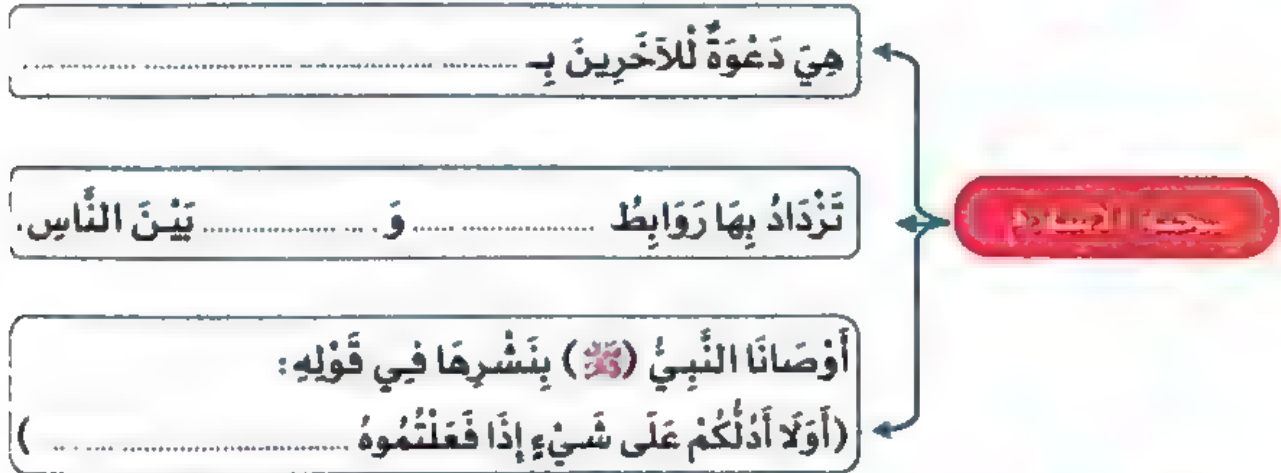 هِيَ دَعْوَةٌ لْلآخَرِينَ بِـ ..............................
تَزْدَادُ بِهَا رَوَابِطُ .................... وَ .................... بَيْنَ النَّاسِ.
أَوْصَانَا النَّبِيُّ (ﷺ) بِنَشْرِهَا فِي قَوْلِهِ:
(أَوَلَا أَدُلُّكُمْ عَلَى شَيْءٍ إِذَا فَعَلْتُمُوهُ ..............................)